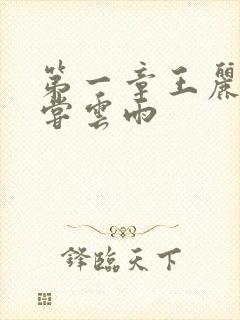 第一章王麗
嘗雲雨
鋒臨天下